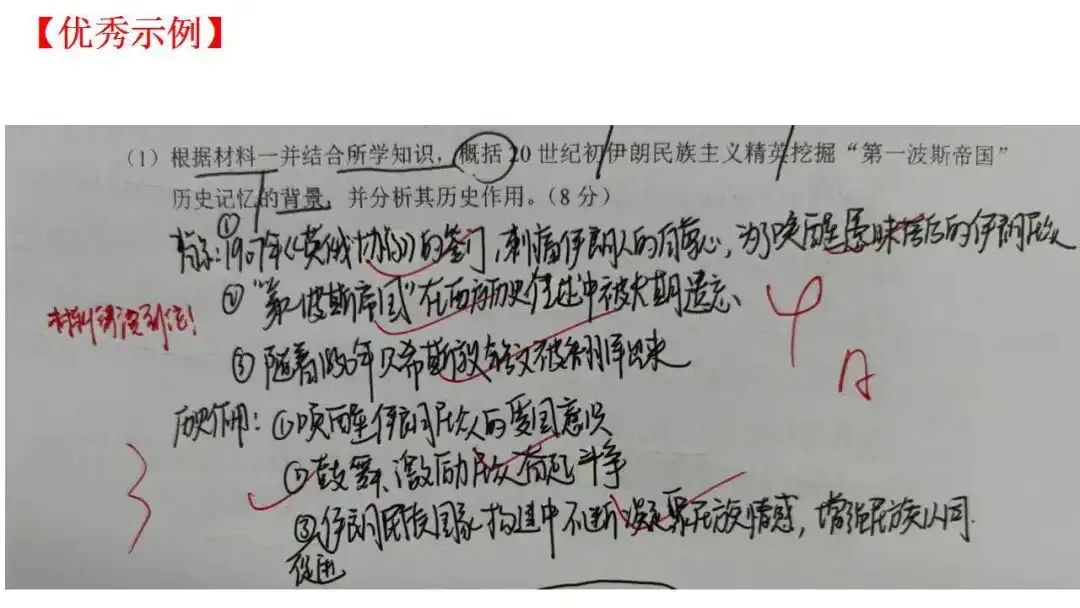 【优秀示例】
(1) 根据材料一并结合所学知识，概括20世纪初伊朗民族主义精英挖掘“第一波斯帝国”
历史记忆的背景，并分析其历史作用。(8分)
背景：①1907年《英俄协约》的签订，刺痛伊朗人的自尊心，为了唤醒愚昧落后的伊朗民众
②“第一波斯帝国”在西方历史传述中被长期遗忘、
材料
③随着1850年贝希斯敦铭文被翻译出来
4
A
历史作用：①唤醒伊朗民众的爱国意识
②鼓舞、激励民众奋起斗争
3
③伊朗民族国家构建中不断凝聚民族情感，增强民族认同.
促进